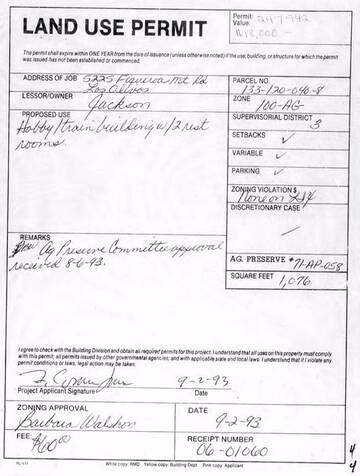 LAND USE PERMIT
Permit: 247942
Value: 18,000-
The permit shall expire within ONE YEAR from the date of issuance (unless otherwise noted) if the use, building, or structure for which the permit was issued has not been established or commenced.
ADDRESS OF JOB 5225 Figueroa Mt Rd
Los Olivos
LESSOR/OWNER Jackson
PROPOSED USE
Hobby/train building w/2 rest
rooms.
PARCEL NO.
133-120-046-8
ZONE
100-AG
SUPERVISORIAL DISTRICT
3
SETBACKS ✓
VARIABLE ✓
PARKING ✓
ZONING VIOLATIONS
None on
DISCRETIONARY CASE
REMARKS
Ag Preserve Committee approval
received 8-6-93.
AG. PRESERVE #71-AP-058
SQUARE FEET
1,076
I agree to check with the Building Division and obtain all required permits for this project. I understand that all uses on this property must comply
with this permit; all permits issued by other governmental agencies; and with applicable state and local laws. I understand that if I violate any
permit conditions or laws, legal action may be taken.
9-2-93
Project Applicant Signature
Date
ZONING APPROVAL
Barbara
DATE
9-2-93
FEE: $60.00
RECEIPT NUMBER
06-01060
White copy: RMD Yellow copy: Building Dept. Pink copy: Applicant